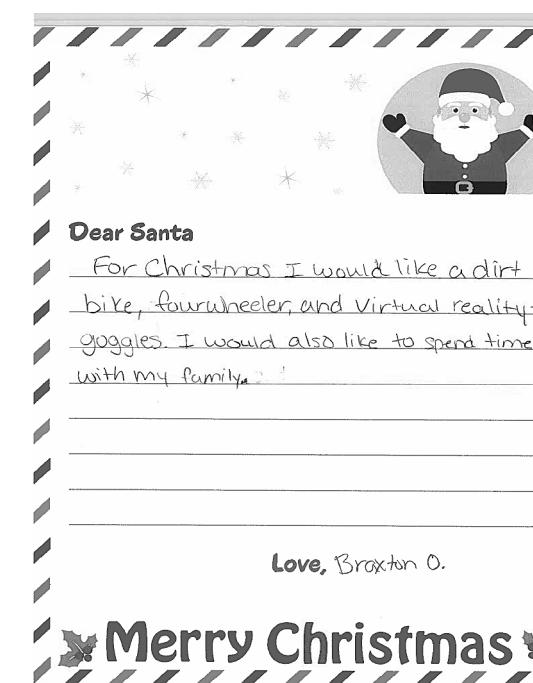 Dear Santa
For Christmas I would like a dirt
bike, fourwheeler, and Virtual reality
goggles. I would also like to spend time
with my family.
Love, Braxton O.
Merry Christmas